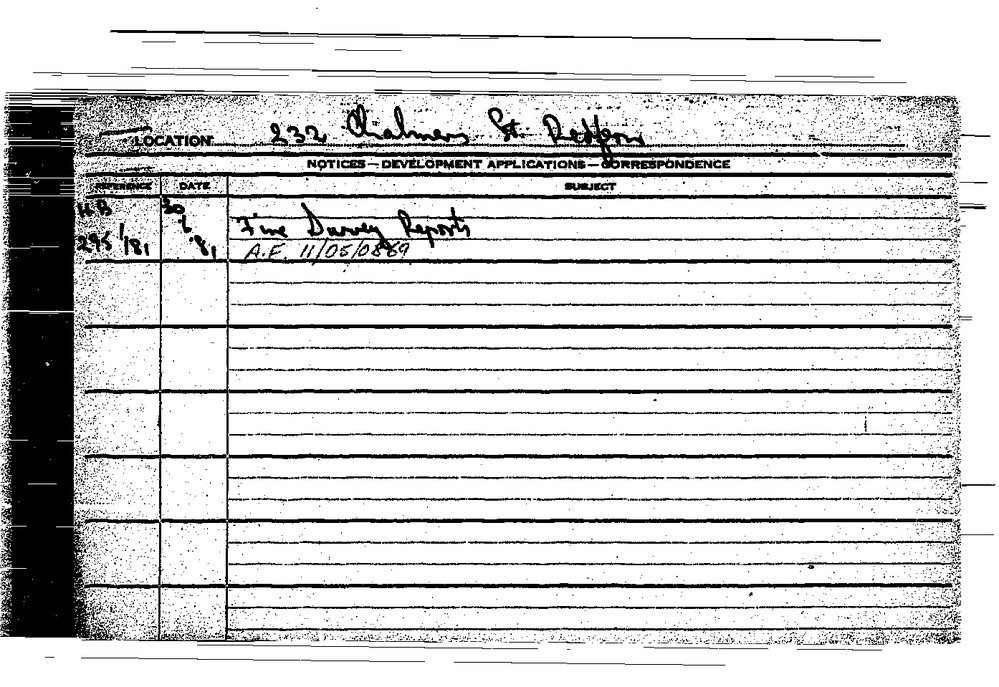 LOCATION 232 Chalmers St. Redfern
NOTICES — DEVELOPMENT APPLICATIONS — CORRESPONDENCE
REFERENCE DATE SUBJECT
HB 30
Fire Survey Reports
295/81 '81 A.F. 11/05/0869